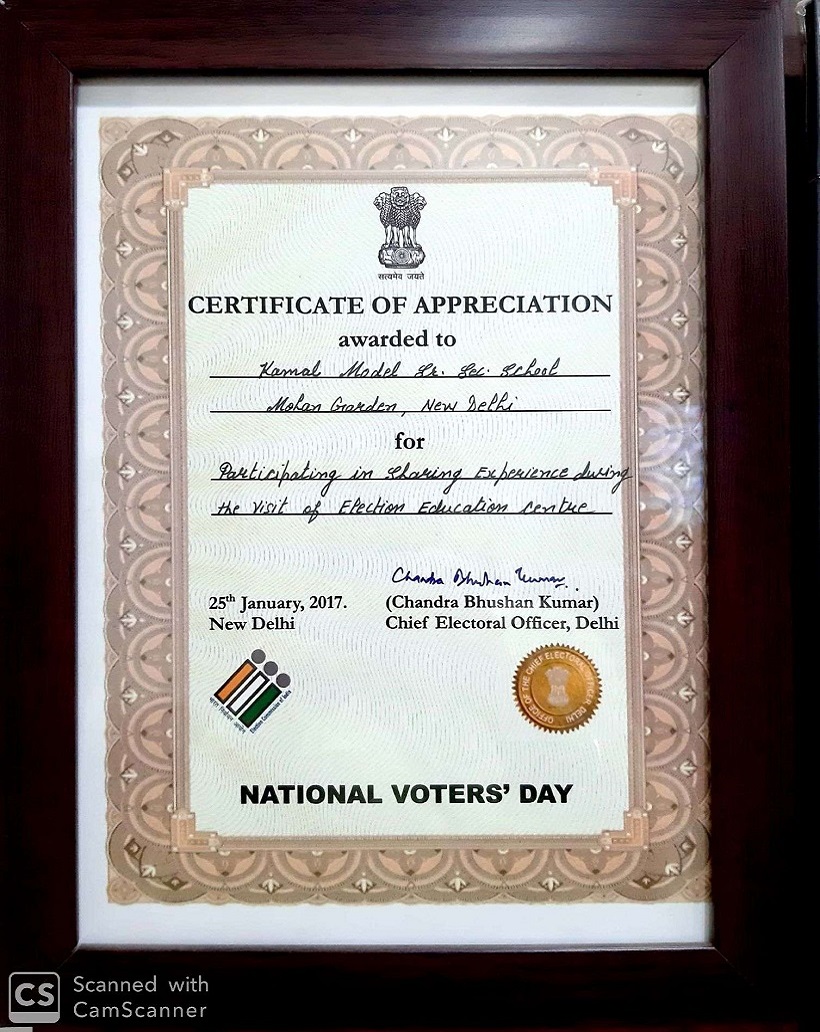 सत्यमेव जयते
CERTIFICATE OF APPRECIATION
awarded to
Kamal Model Sr. Sec. School
Mohan Garden, New Delhi
for
Participating in Sharing Experience during
the Visit of Election Education Centre
Chandra Bhushan Kumar
25th January, 2017. (Chandra Bhushan Kumar)
New Delhi Chief Electoral Officer, Delhi
भारत निर्वाचन आयोग
Election Commission of India
OFFICE OF THE CHIEF ELECTORAL OFFICER, DELHI
NATIONAL VOTERS' DAY
CS Scanned with
CamScanner